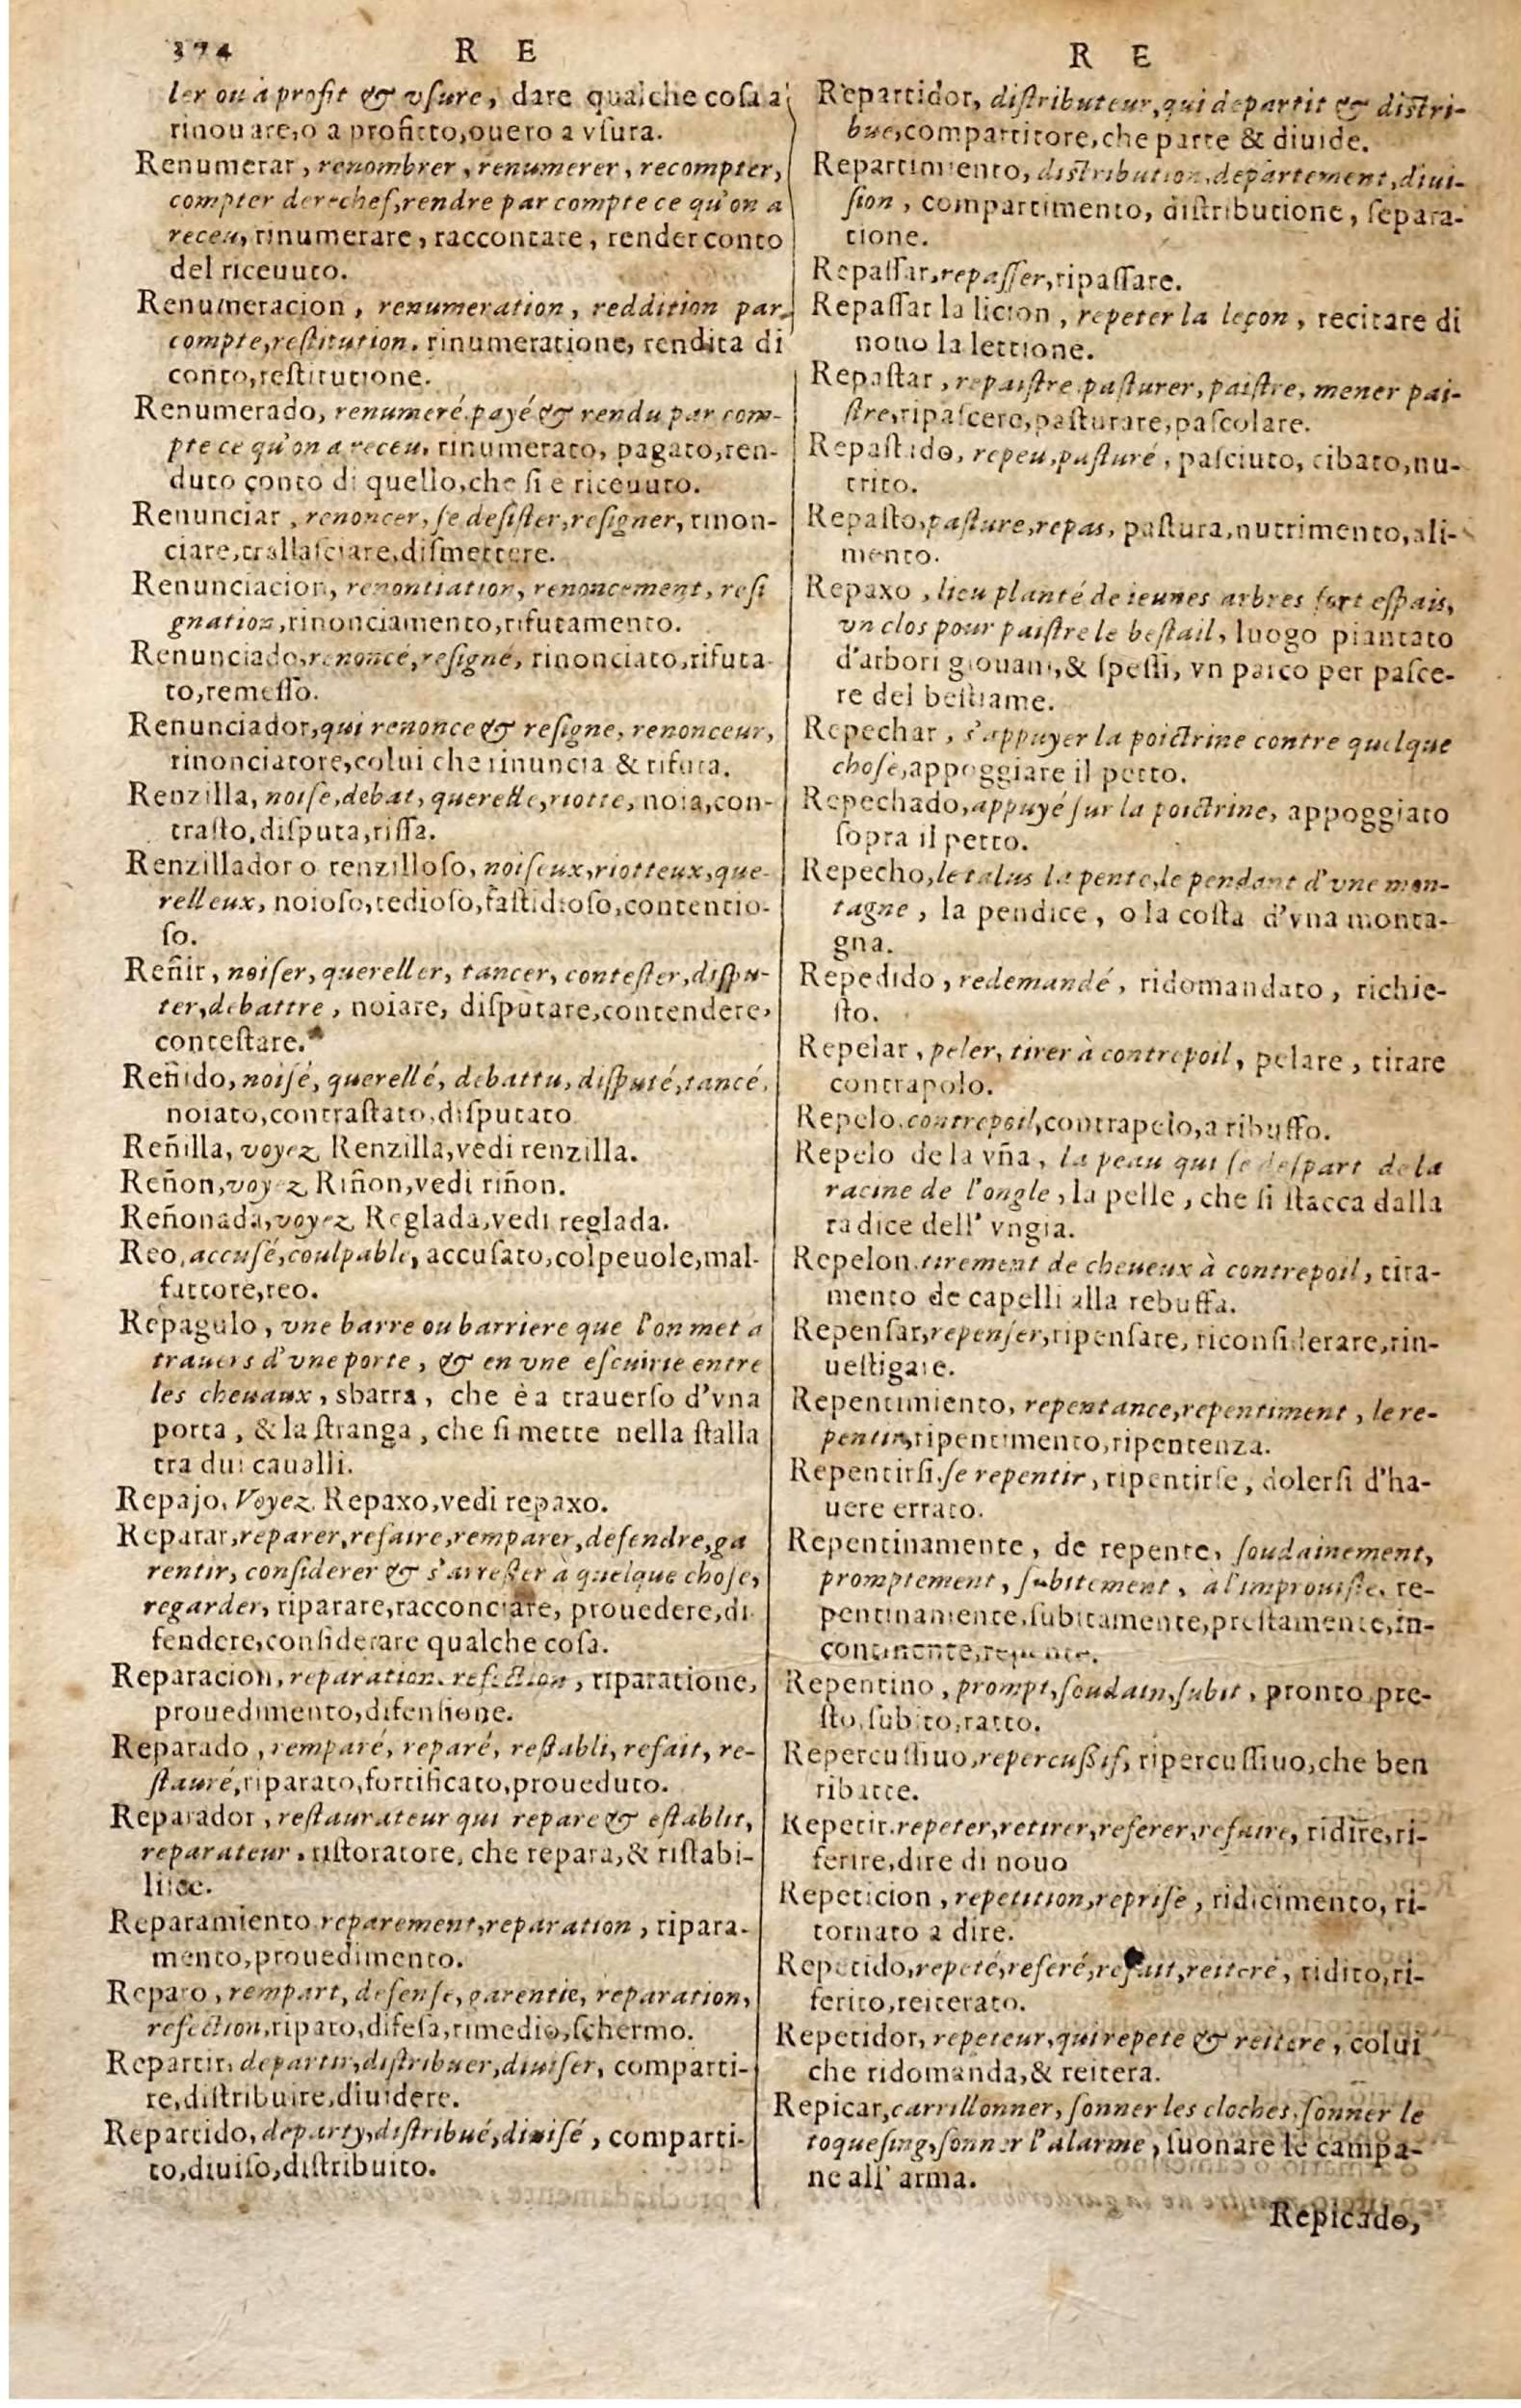 374 R E
ler ou à profit & vſure, dare qualche coſa a
rinouare,o a profitto,ouero a vſura.
Renumerar, renombrer, renumerer, recompter,
compter derechef,rendre par compte ce qu'on a
receu, rinumerare, raccontare, render conto
del riceuuto.
Renumeracion, renumeration, reddition par
compte,reſtitution. rinumeratione, rendita di
conto,reſtitutione.
Renumerado, renumeré. payé & rendu par com-
pte ce qu'on a receu. rinumerato, pagato,ren-
duto conto di quello,che ſi e riceuuto.
Renunciar, renoncer, ſe deſiſter,reſigner, rinon-
ciare,tralaſciare,diſmettere.
Renunciacion, renontiation, renoncement, reſi
gnation,rinonciamento,rifutamento.
Renunciado,renoncé,reſigné, rinonciato,rifuta-
to,remeſſo.
Renunciador,qui renonce & reſigne, renonceur,
rinonciatore,colui che rinuncia & rifuta.
Renzilla, noiſe,debat, querelle,riotte, noia,con-
traſto,diſputa,riſſa.
Renzillador o renzilloſo, noiſeux,riotteux,que-
relleux, noioſo,tedioſo,faſtidioſo,contentio-
ſo.
Reñir, noiſer, quereller, tancer, conteſter,diſpu-
ter,debattre, noiare, diſputare,contendere,
conteſtare.
Reñido, noiſé, querellé, debattu, diſputé,tancé,
noiato,contraſtato,diſputato
Reñilla, voyez Renzilla,vedi renzilla.
Reñon,voyez Riñon,vedi riñon.
Reñonada,voyez Reglada,vedi reglada.
Reo,accuſé,coulpable, accuſato,colpeuole,mal-
fattore,reo.
Repagulo, vne barre ou barriere que l'on met à
trauers d'vne porte, & en vne eſcuirie entre
les cheuaux, sbarra, che è a trauerſo d'vna
porta, & la ſtranga, che ſi mette nella ſtalla
tra dui caualli.
Repajo. Voyez Repaxo,vedi repaxo.
Reparar,reparer,refaire,remparer,defendre,ga
rentir, conſiderer & s'arreſter à quelque choſe,
regarder, riparare,racconciare, prouedere,di-
fendere,conſiderare qualche coſa.
Reparacion, reparation. refection, riparatione,
prouedimento,difenſione.
Reparado, remparé, reparé, reſtabli, refait, re-
ſtauré,riparato,fortificato,proueduto.
Reparador, reſtaurateur qui repare & eſtablit,
reparateur. riſtoratore, che repara,& riſtabi-
liſce.
Reparamiento reparement,reparation, ripara-
mento,prouedimento.
Reparo, rempart, defenſe, garentie, reparation,
refection,riparo,difeſa,rimedio,ſchermo.
Repartir, departir,diſtribuer,diuiſer, comparti-
re,diſtribuire,diuidere.
Repartido, departy,diſtribué,diuiſé, comparti-
to,diuiſo,diſtribuito.
R E
Repartidor, diſtributeur,qui departit & diſtri-
bue,compartitore,che parte & diuide.
Repartimiento, diſtribution,departement,diui-
ſion, compartimento, diſtributione, ſepara-
tione.
Repaſſar,repaſſer,ripaſſare.
Repaſſar la licion, repeter la leçon, recitare di
nouo la lettione.
Repaſtar, repaiſtre paſturer, paiſtre, mener pai-
ſtre,ripaſcere,paſturare,paſcolare.
Repaſtido, repeu,paſturé, paſciuto, cibato,nu-
trito.
Repaſto,paſture,repas, paſtura,nutrimento,ali-
mento.
Repaxo, lieu planté de ieunes arbres fort eſpais,
vn clos pour paiſtre le beſtail, luogo piantato
d'arbori giouani,& ſpeſſi, vn parco per paſce-
re del beſtiame.
Repechar, s'appuyer la poictrine contre quelque
choſe,appoggiare il petto.
Repechado,appuyé ſur la poictrine, appoggiato
ſopra il petto.
Repecho,le talus la pente,le pendant d'vne mon-
tagne, la pendice, o la coſta d'vna monta-
gna.
Repedido, redemandé, ridomandato, richie-
ſto.
Repelar, peler, tirer à contrepoil, pelare, tirare
contrapolo.
Repelo.contrepoil,contrapelo,a ribuffo.
Repelo de la vña, la peau qui ſe deſpart de la
racine de l'ongle, la pelle, che ſi ſtacca dalla
radice dell' vngia.
Repelon.tirement de cheueux à contrepoil, tira-
mento de capelli alla rebuffa.
Repenſar,repenſer,ripenſare, riconſiderare,rin-
ueſtigare.
Repentimiento, repentance,repentiment, le re-
pentir,ripentimento,ripentenza.
Repentirſi.ſe repentir, ripentirſe, dolerſi d'ha-
uere errato.
Repentinamente, de repente, ſoudainement,
promptement, ſubitement, à l'improuiſte, re-
pentinamente,ſubitamente,preſtamente,in-
continente,repente.
Repentino, prompt,ſoudain,ſubit, pronto,pre-
ſto,ſubito,ratto.
Repercuſſiuo,repercuſſif, ripercuſſiuo,che ben
ribatte.
Repetir.repeter,retirer,referer,refaire, ridire,ri-
ferire,dire di nouo
Repeticion, repetition,repriſe, ridicimento, ri-
tornato a dire.
Repetido,repeté,referé,refait,reiteré, ridito,ri-
ferito,reiterato.
Repetidor, repeteur,qui repete & reitere, colui
che ridomanda,& reitera.
Repicar,carrillonner, ſonner les cloches,ſonner le
toqueſing,ſonner l'alarme, ſuonare le campa-
ne all' arma.
Repicado,